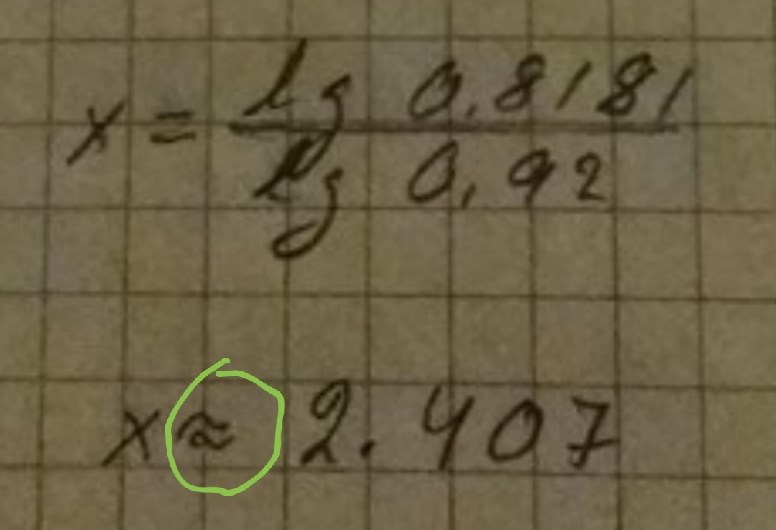 x = lg 0,8181 / lg 0,92
x ≈ 2.407